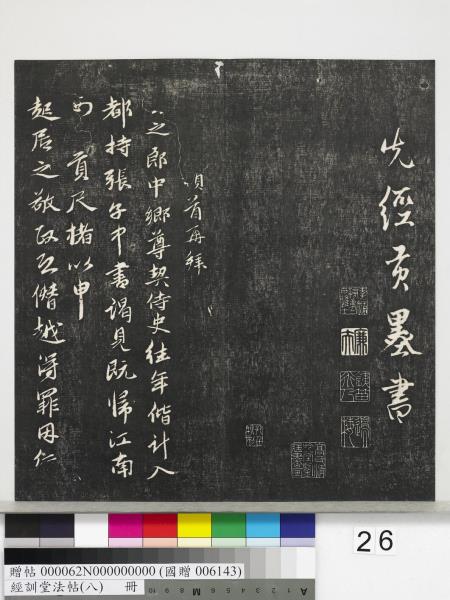 先經貢墨書
頓首再拜
之郎中鄉尊契侍史往年偕計入
都持張子中書謁見既歸江南
貢尺楮以申
起居之敬政恐僭越得罪因仁
26
贈帖 000062N000000000 (國贈 006143)
經訓堂法帖(八) 冊